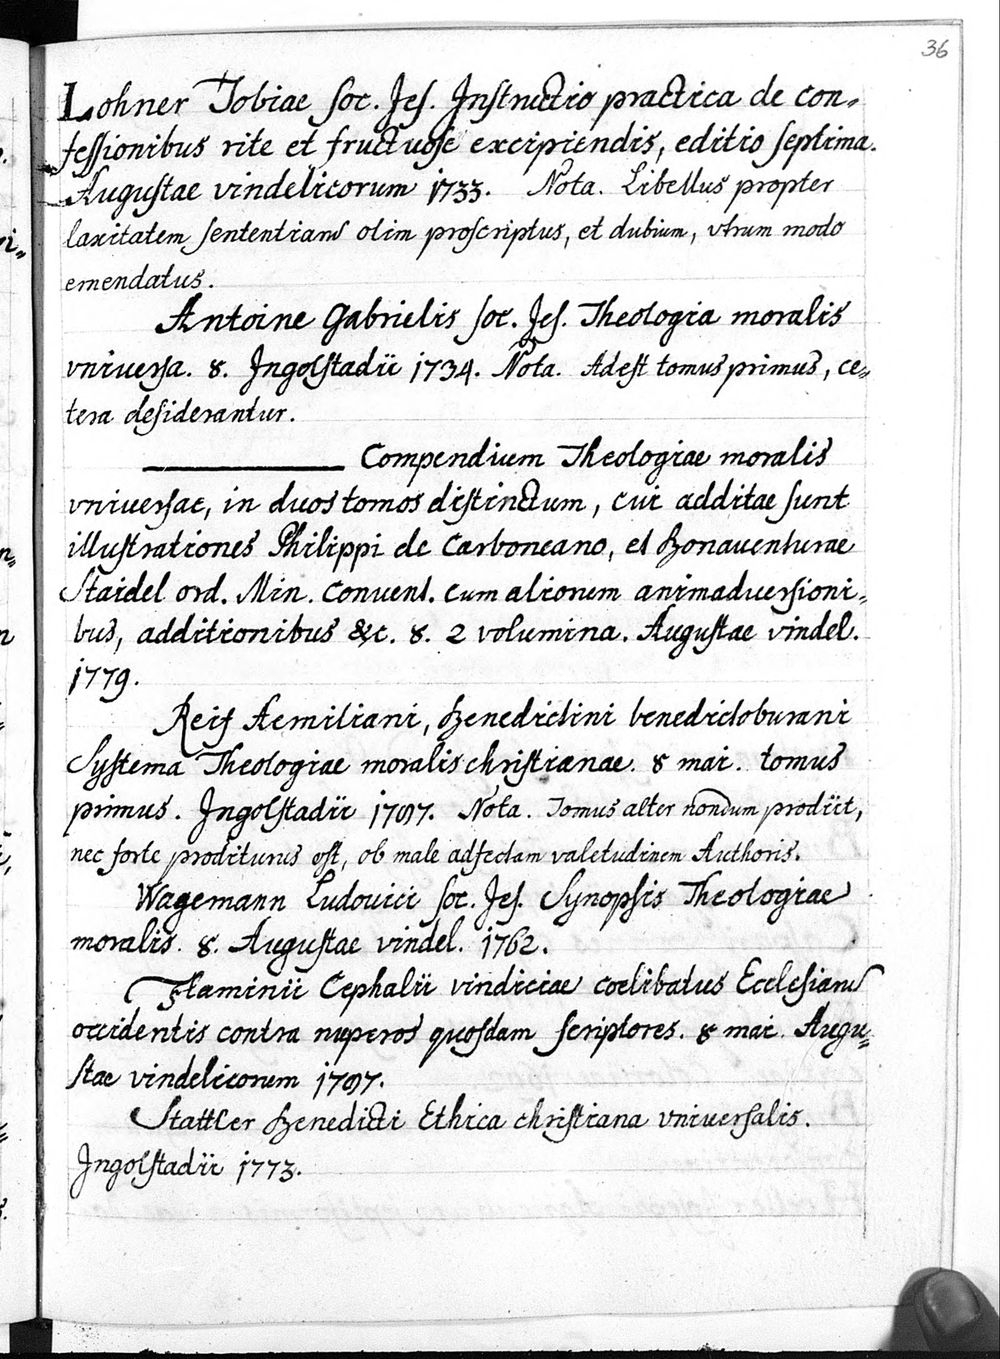 36
Lohner Tobiae Soc. Jes. Instructio practica de con„
fessionibus rite et fructuose excipiendis, editio septima.
Augustae vindelicorum 1733. Nota. Libellus propter
laxitatem sententiarum olim proscriptus, et dubium, vtrum modo
emendatus.
Antoine Gabrielis Soc. Jes. Theologia moralis
vniuersa. 8. Ingolstadii 1734. Nota. Adest tomus primus, ce„
tera desiderantur.
———— Compendium Theologiae moralis
vniuersae, in duos tomos distinctum, cui additae sunt
illustrationes Philippi de Carboneano, et Bonauenturae
Staidel ord. Min. Conuent. cum aliorum animaduersioni„
bus, additionibus &c. 8. 2 volumina. Augustae vindel.
1779.
Reif Aemiliani, Benedictini benedictoburani
Systema Theologiae moralis christianae. 8 mai. tomus
primus. Ingolstadii 1787. Nota. Tomus alter nondum prodiit,
nec forte proditurus est, ob male adfectam valetudinem Authoris.
Wagemann Ludouici Soc. Jes. Synopsis Theologiae
moralis. 8. Augustae vindel. 1762.
Flaminii Cephalii vindiciae coelibatus Ecclesiarum
occidentis contra nuperos quosdam scriptores. 8 mai. Augu„
stae vindelicorum 1787.
Stattler Benedicti Ethica christiana vniuersalis.
Ingolstadii 1773.